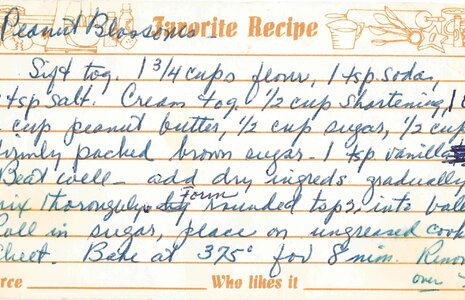 Peanut Blossoms - Favorite Recipe
Sift tog. 1 3/4 cups flour, 1 tsp soda,
tsp salt. Cream tog. 1/2 cup shortening, 1
cup peanut butter, 1/2 cup sugar, 1/2 cup
firmly packed brown sugar - 1 tsp vanilla
Beat well - add dry ingreds gradually
mix thoroughly. Form rounded tsps, into balls
Roll in sugar, place on ungreased cook
sheet. Bake at 375° for 8 min. Remov
rce Who likes it over